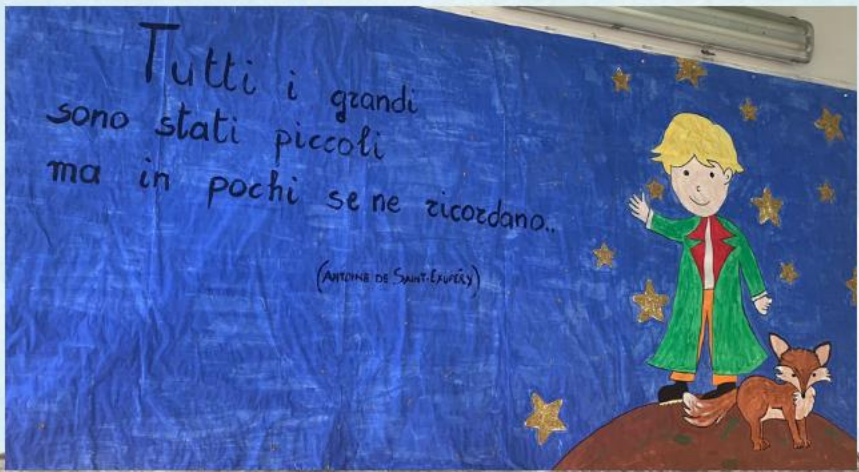 Tutti i grandi
sono stati piccoli
ma in pochi se ne ricordano..
(ANTOINE DE SAINT-EXUPÉRY)